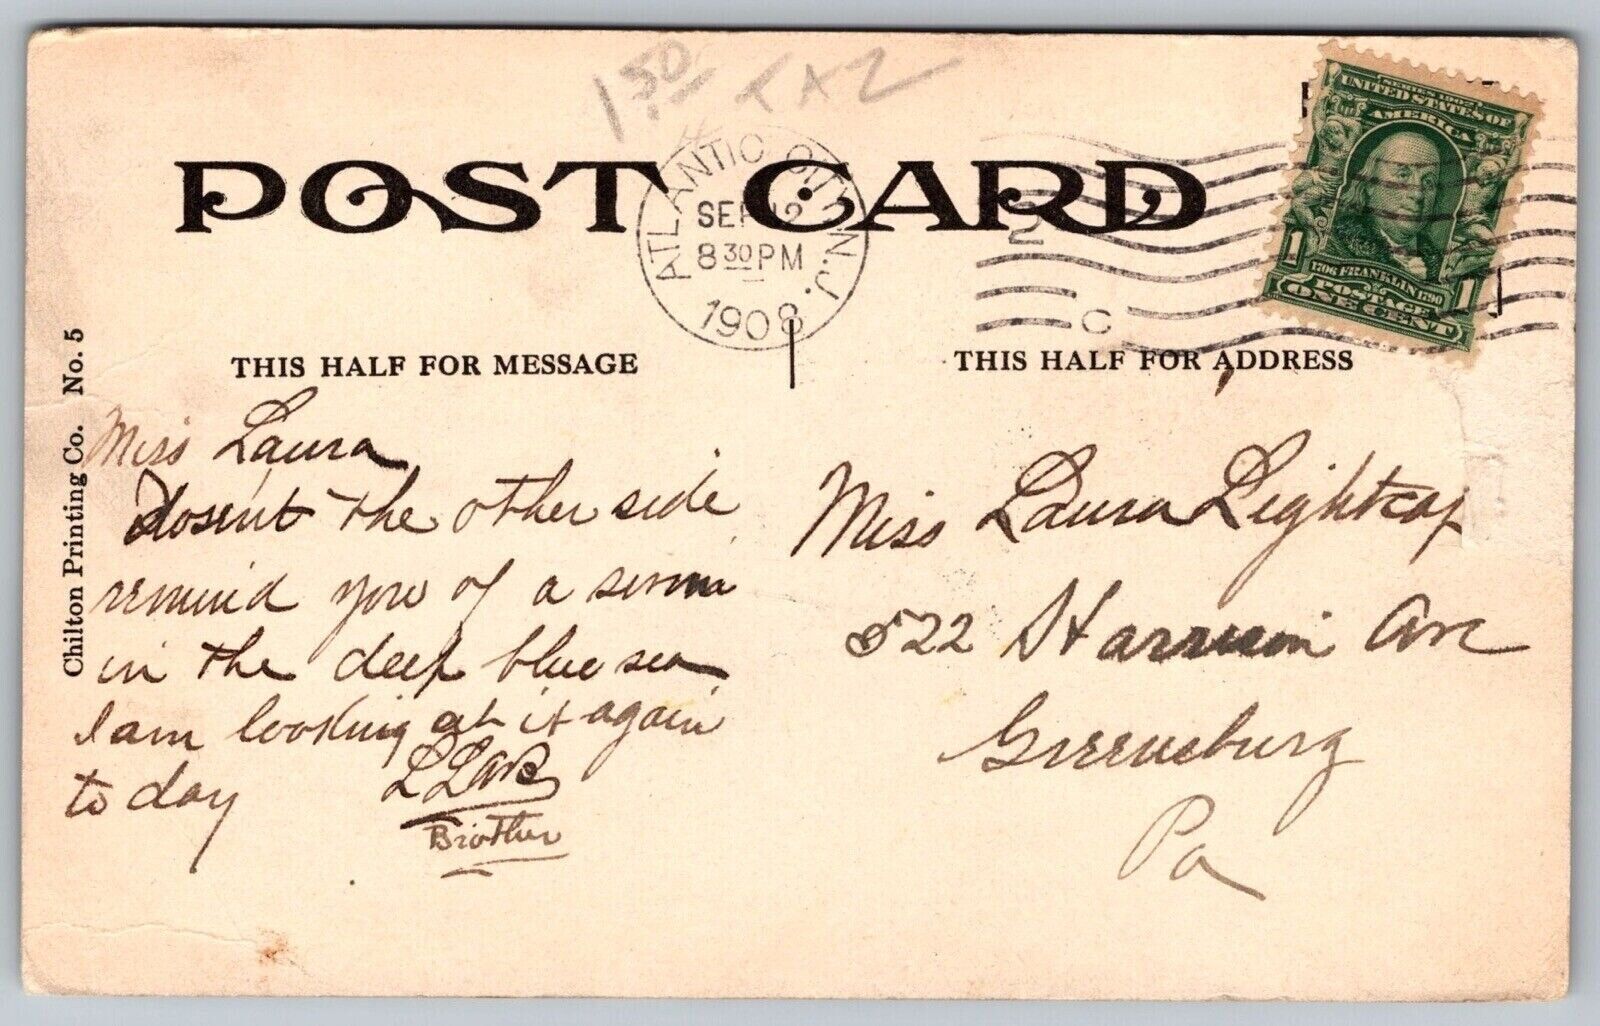 1.50 TAZ
POST CARD
ATLANTIC CITY, N.J.
SEP 12
8 30 PM
1908
2
C
SERIES 1902
UNITED STATES OF
AMERICA
1 1
1706 FRANKLIN 1790
POSTAGE
ONE CENT
THIS HALF FOR MESSAGE
THIS HALF FOR ADDRESS
Chilton Printing Co. No. 5
Miss Laura
dosent the other side
remind you of a
in the deep blue sea
I am looking at it again
to day
Brother
Miss Laura Lightcap
522 Harrison Ave
Greensburg
Pa